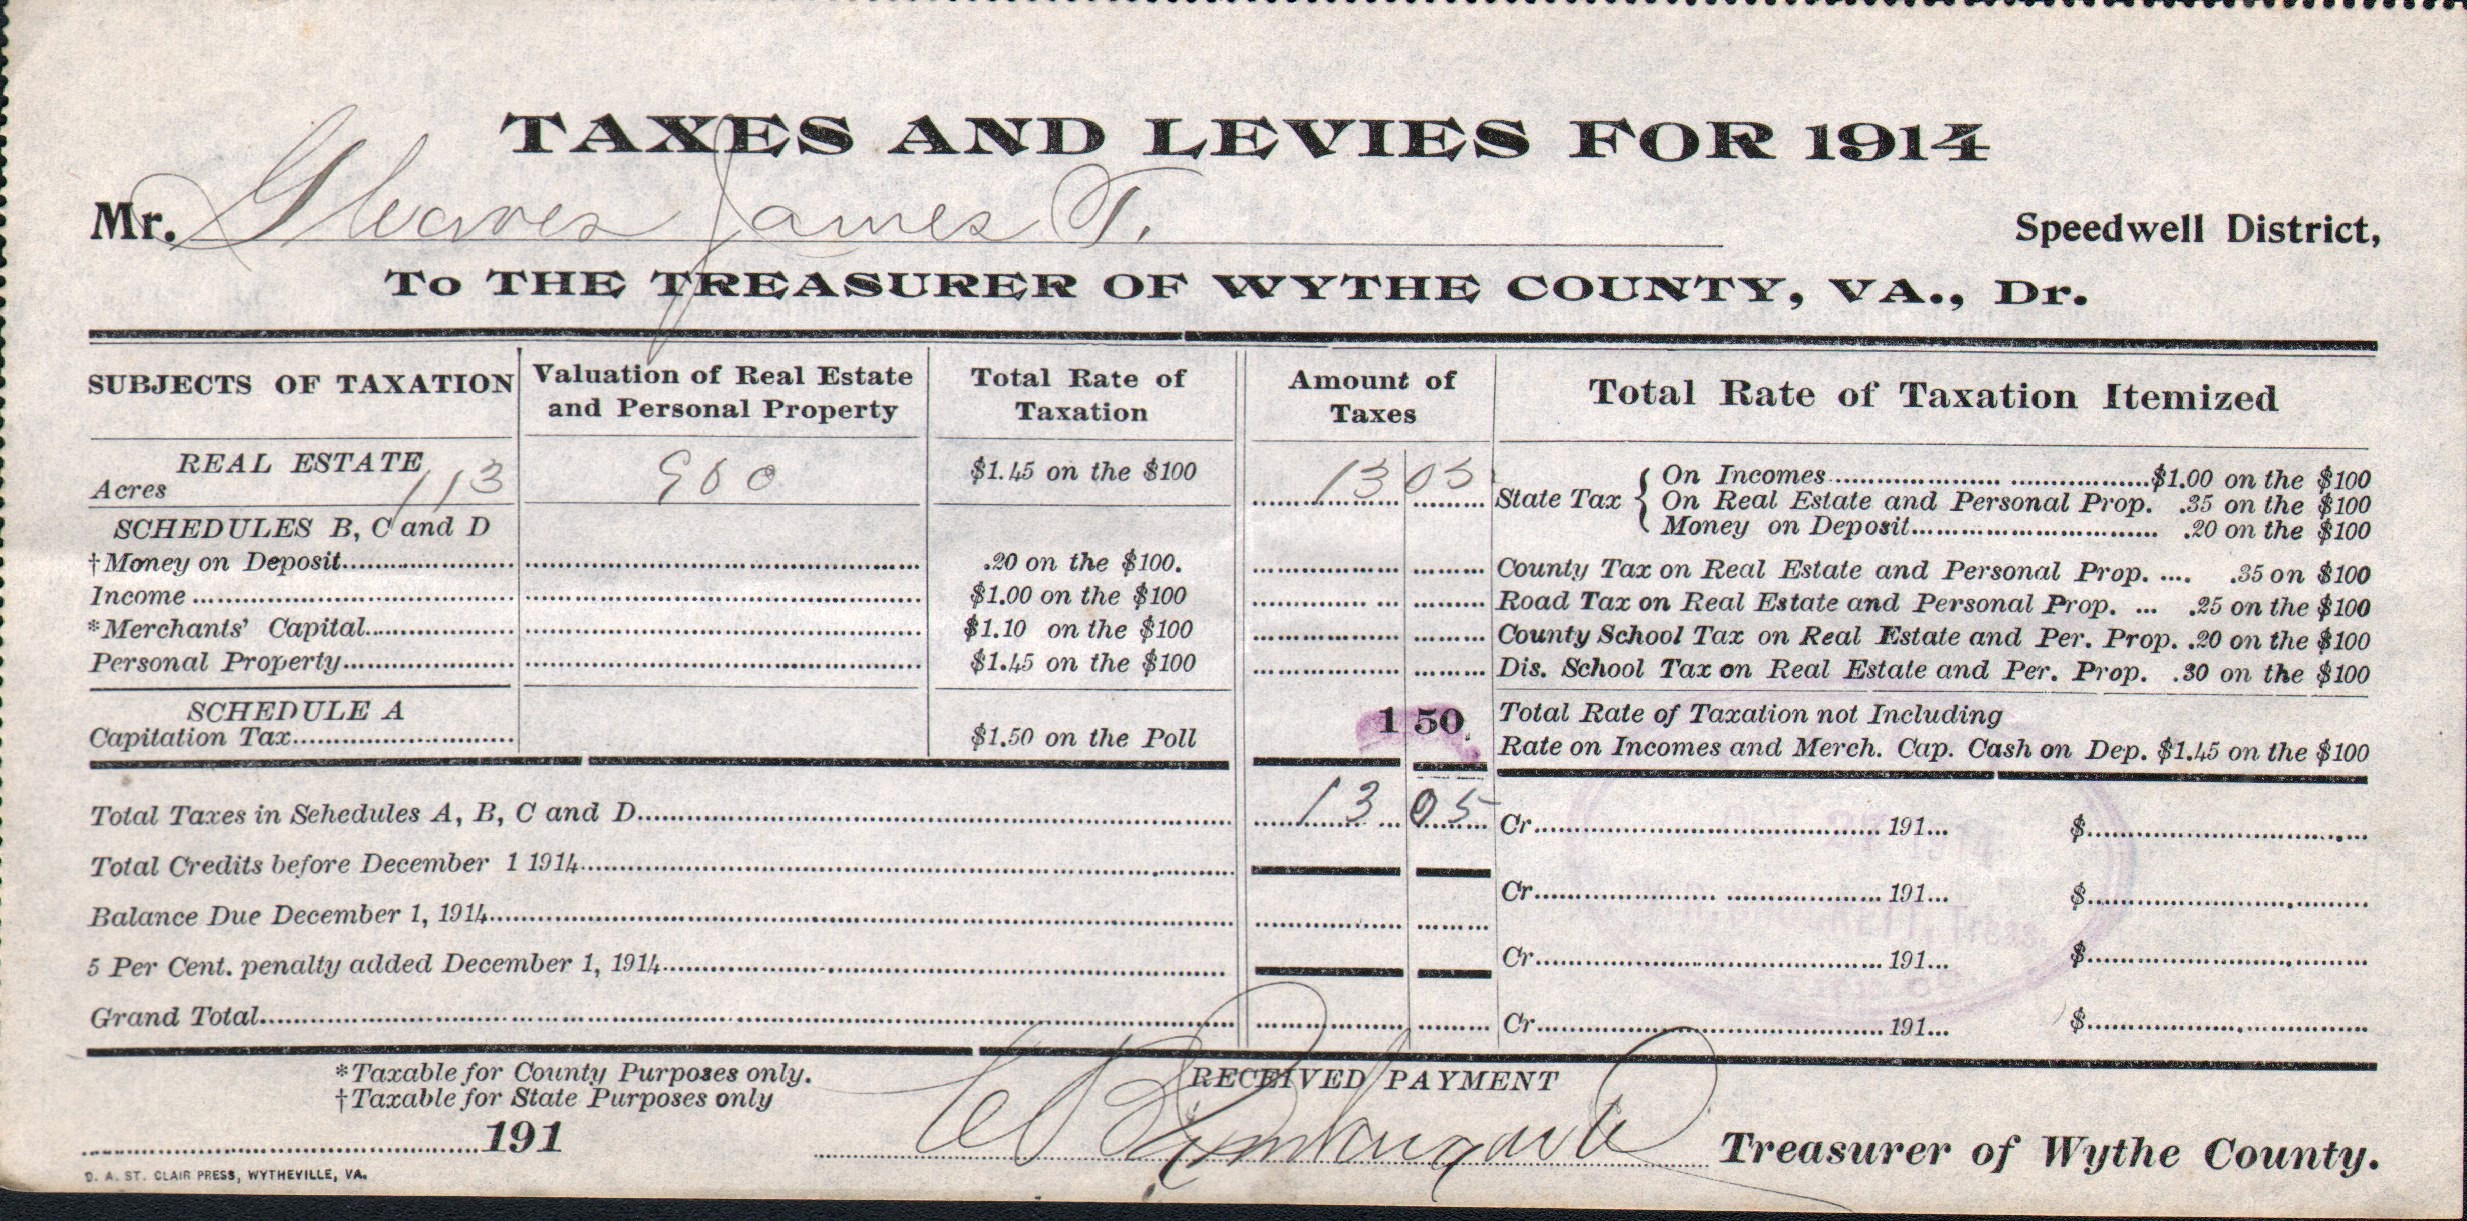 TAXES AND LEVIES FOR 1914
Mr. Gleaves James T. Speedwell District,
To THE TREASURER OF WYTHE COUNTY, VA., Dr.
SUBJECTS OF TAXATION
Valuation of Real Estate
and Personal Property
Total Rate of
Taxation
Amount of
Taxes
Total Rate of Taxation Itemized
REAL ESTATE
Acres 113 900 $1.45 on the $100 13 05
SCHEDULES B, C and D
†Money on Deposit .20 on the $100.
Income $1.00 on the $100
*Merchants' Capital $1.10 on the $100
Personal Property $1.45 on the $100
SCHEDULE A
Capitation Tax $1.50 on the Poll 1 50
State Tax { On Incomes $1.00 on the $100
On Real Estate and Personal Prop. .35 on the $100
Money on Deposit .20 on the $100
County Tax on Real Estate and Personal Prop. .... .35 on $100
Road Tax on Real Estate and Personal Prop. ... .25 on the $100
County School Tax on Real Estate and Per. Prop. .20 on the $100
Dis. School Tax on Real Estate and Per. Prop. .30 on the $100
Total Rate of Taxation not Including
Rate on Incomes and Merch. Cap. Cash on Dep. $1.45 on the $100
Total Taxes in Schedules A, B, C and D 13 05
Total Credits before December 1 1914
Balance Due December 1, 1914
5 Per Cent. penalty added December 1, 1914
Grand Total
Cr. 191... $
Cr. 191... $
Cr. 191... $
Cr. 191... $
OCT 27 1914
Treas.
*Taxable for County Purposes only.
†Taxable for State Purposes only
RECEIVED PAYMENT
191
Treasurer of Wythe County.
D. A. ST. CLAIR PRESS, WYTHEVILLE, VA.